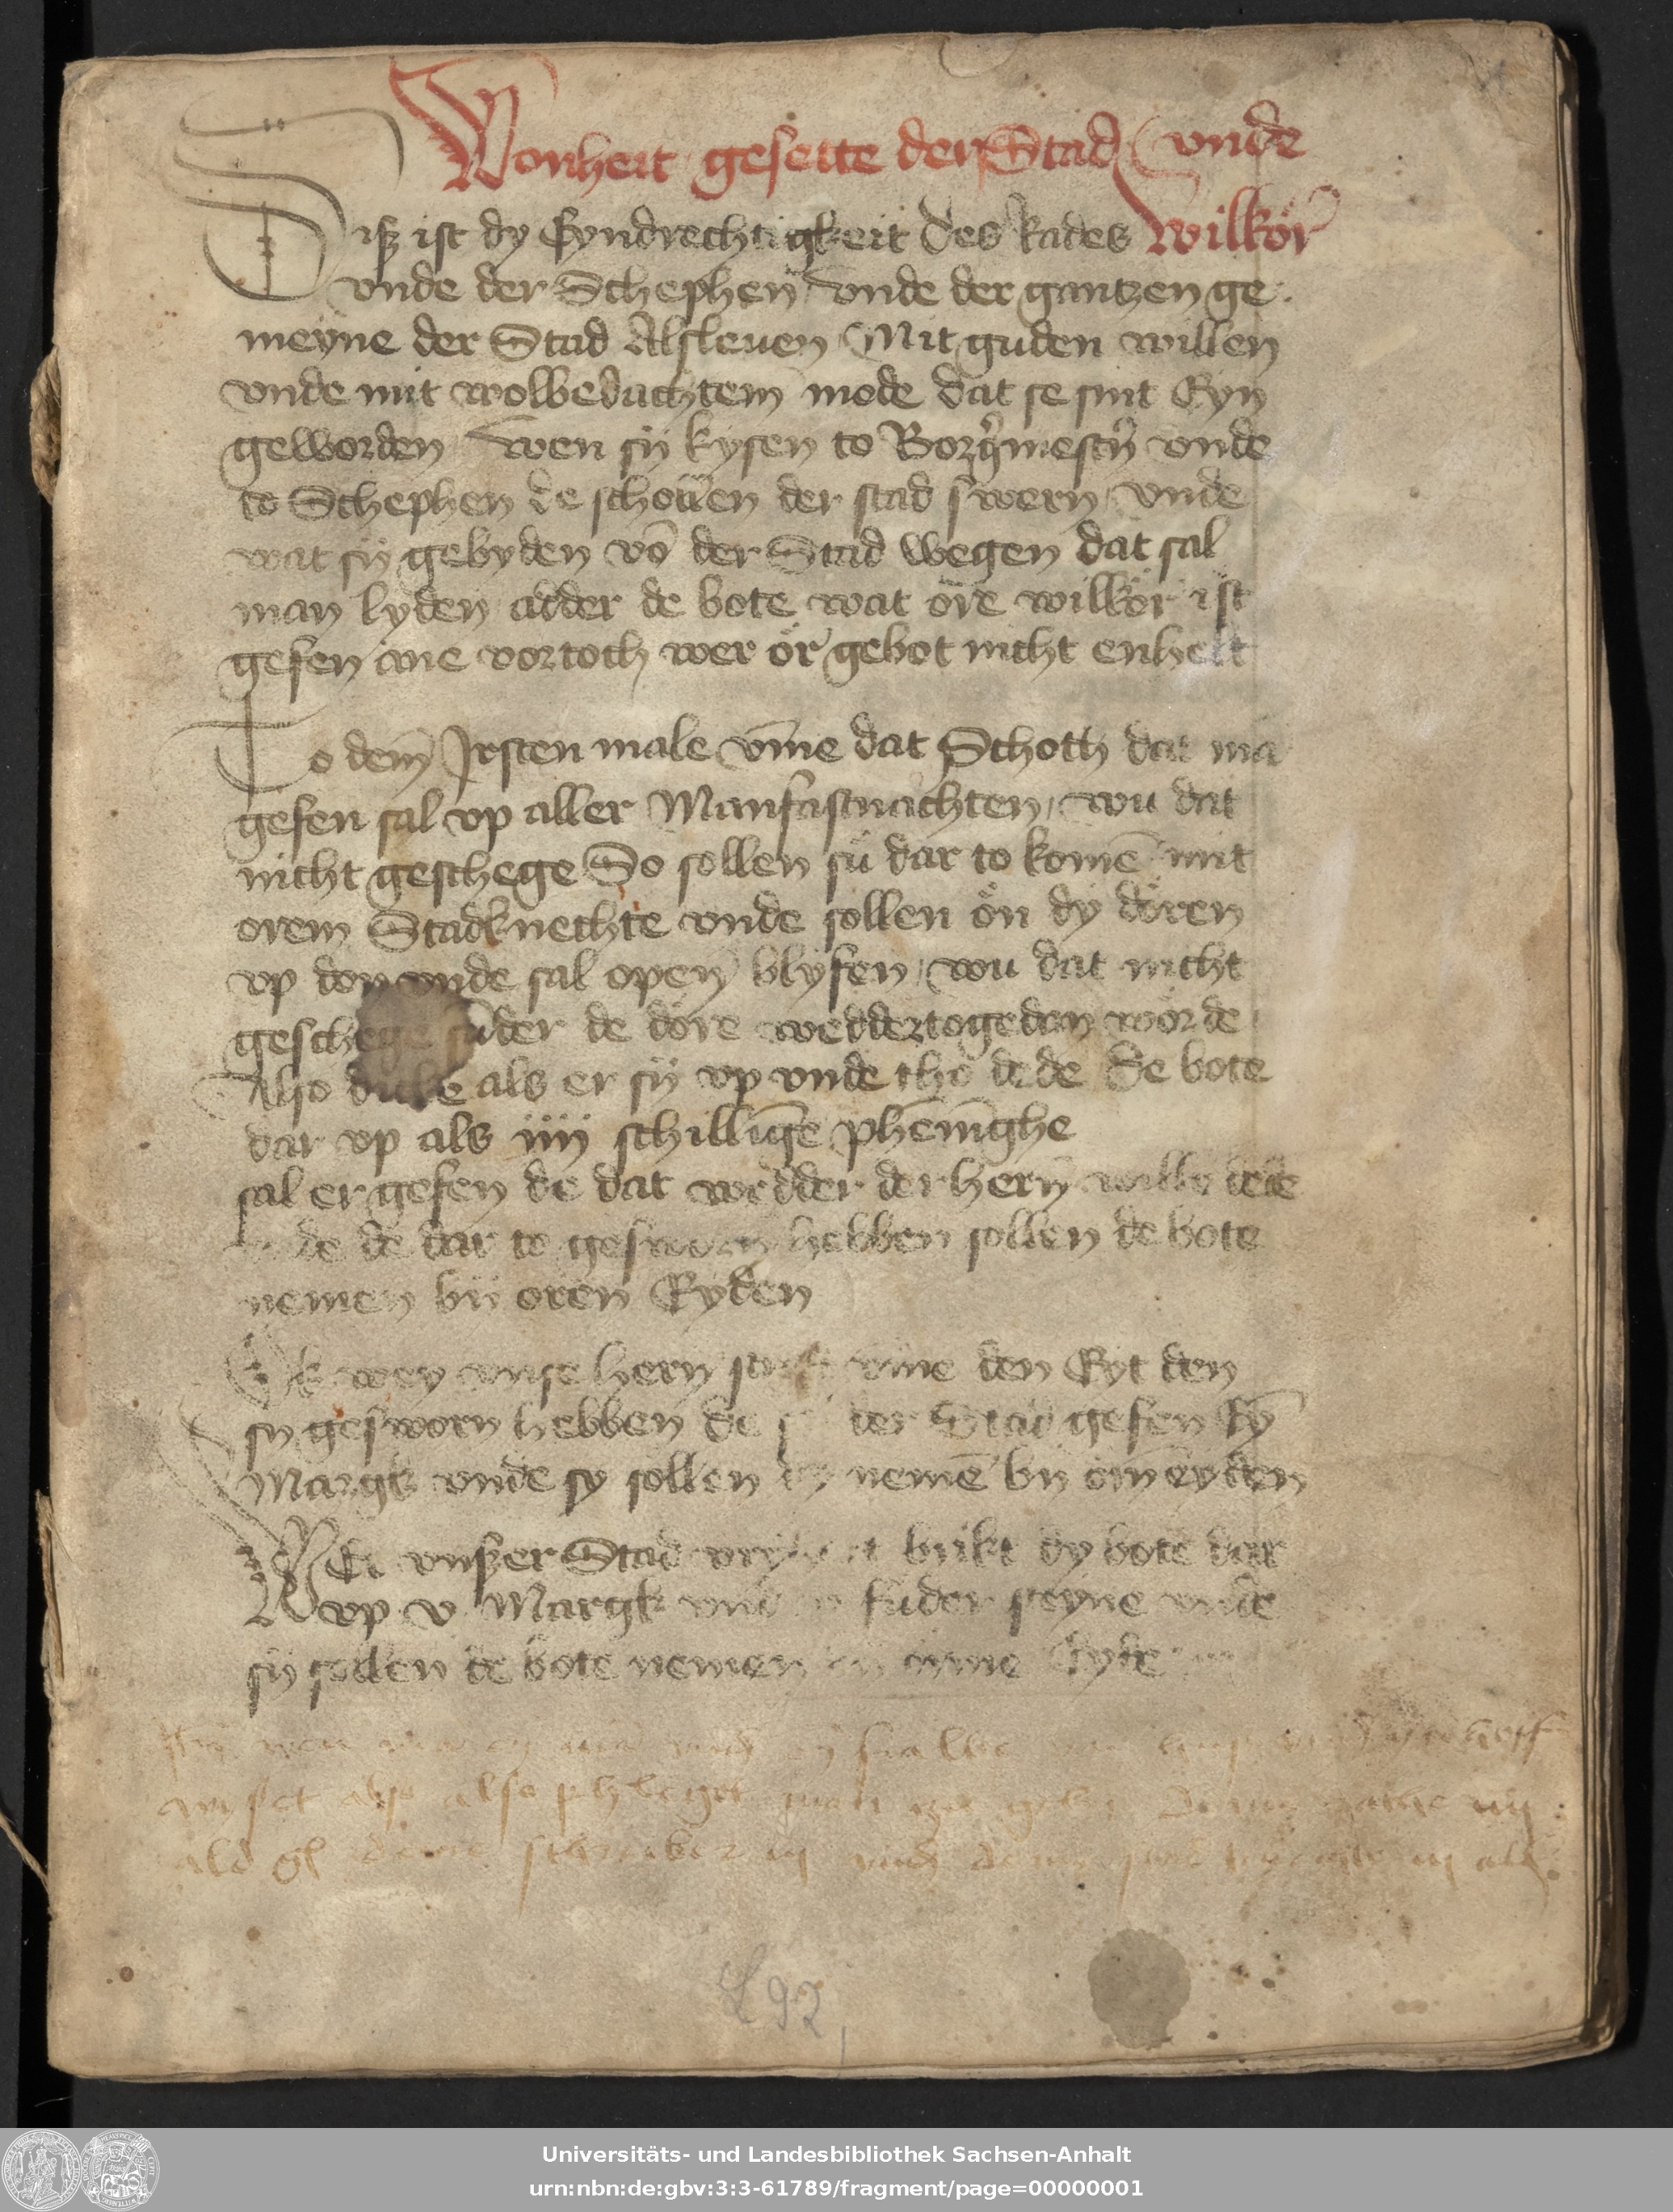 Wonheit gesette der Stad vnde
Wilkör
Disz ist dy Eyndrechtigkeit des Rades
vnde der Schephen vnde der gantzen ge
meyne der Stad Alsleuen Mit guden willen
vnde mit wolbedachtem mode dat se sint Eyn
geworden wen sÿ kysen to Borgmestern vnde
to Schephen de schollen der stad swern vnde
wat sÿ gebyden vō der Stad wegen dat sal
man lyden adder de bote wat ore wilkör ist
gefen ane vortoch wer ör gebot nicht enhelt
To dem Irsten male vm̄e dat Schoth dat mā
gefen sal vp aller Manfastnachten wu dat
nicht geschege So sollen sü dar to komē mit
orem Stadknechte vnde sollen ön dÿ dören
vp don vnde sal open blyfen wu dat nicht
geschege de döre weddertogedan wörde
Also dicke als er sÿ vp vnde tho dede De bote
dar vp als iiij schillīge phēnīghe
sal er gefen de dat wedder der hern willē dede
de de dar to gesworn hebben sollen de bote
nemen bÿ oren Eyden
Ok wey vnse hern vm̄e den Eyt den
sy gesworn hebben de der Stad gefen Eȳ
Margk vnde sy sollen nemē by eyden
WEr vnszer Stad brikt dy bote dar
vp v Margk fuder steyne vnde
sÿ sollen de bote nemen Eyde
wyset also phleget man
ald schreiber iij
L 92
Universitäts- und Landesbibliothek Sachsen-Anhalt
urn:nbn:de:gbv:3:3-61789/fragment/page=00000001